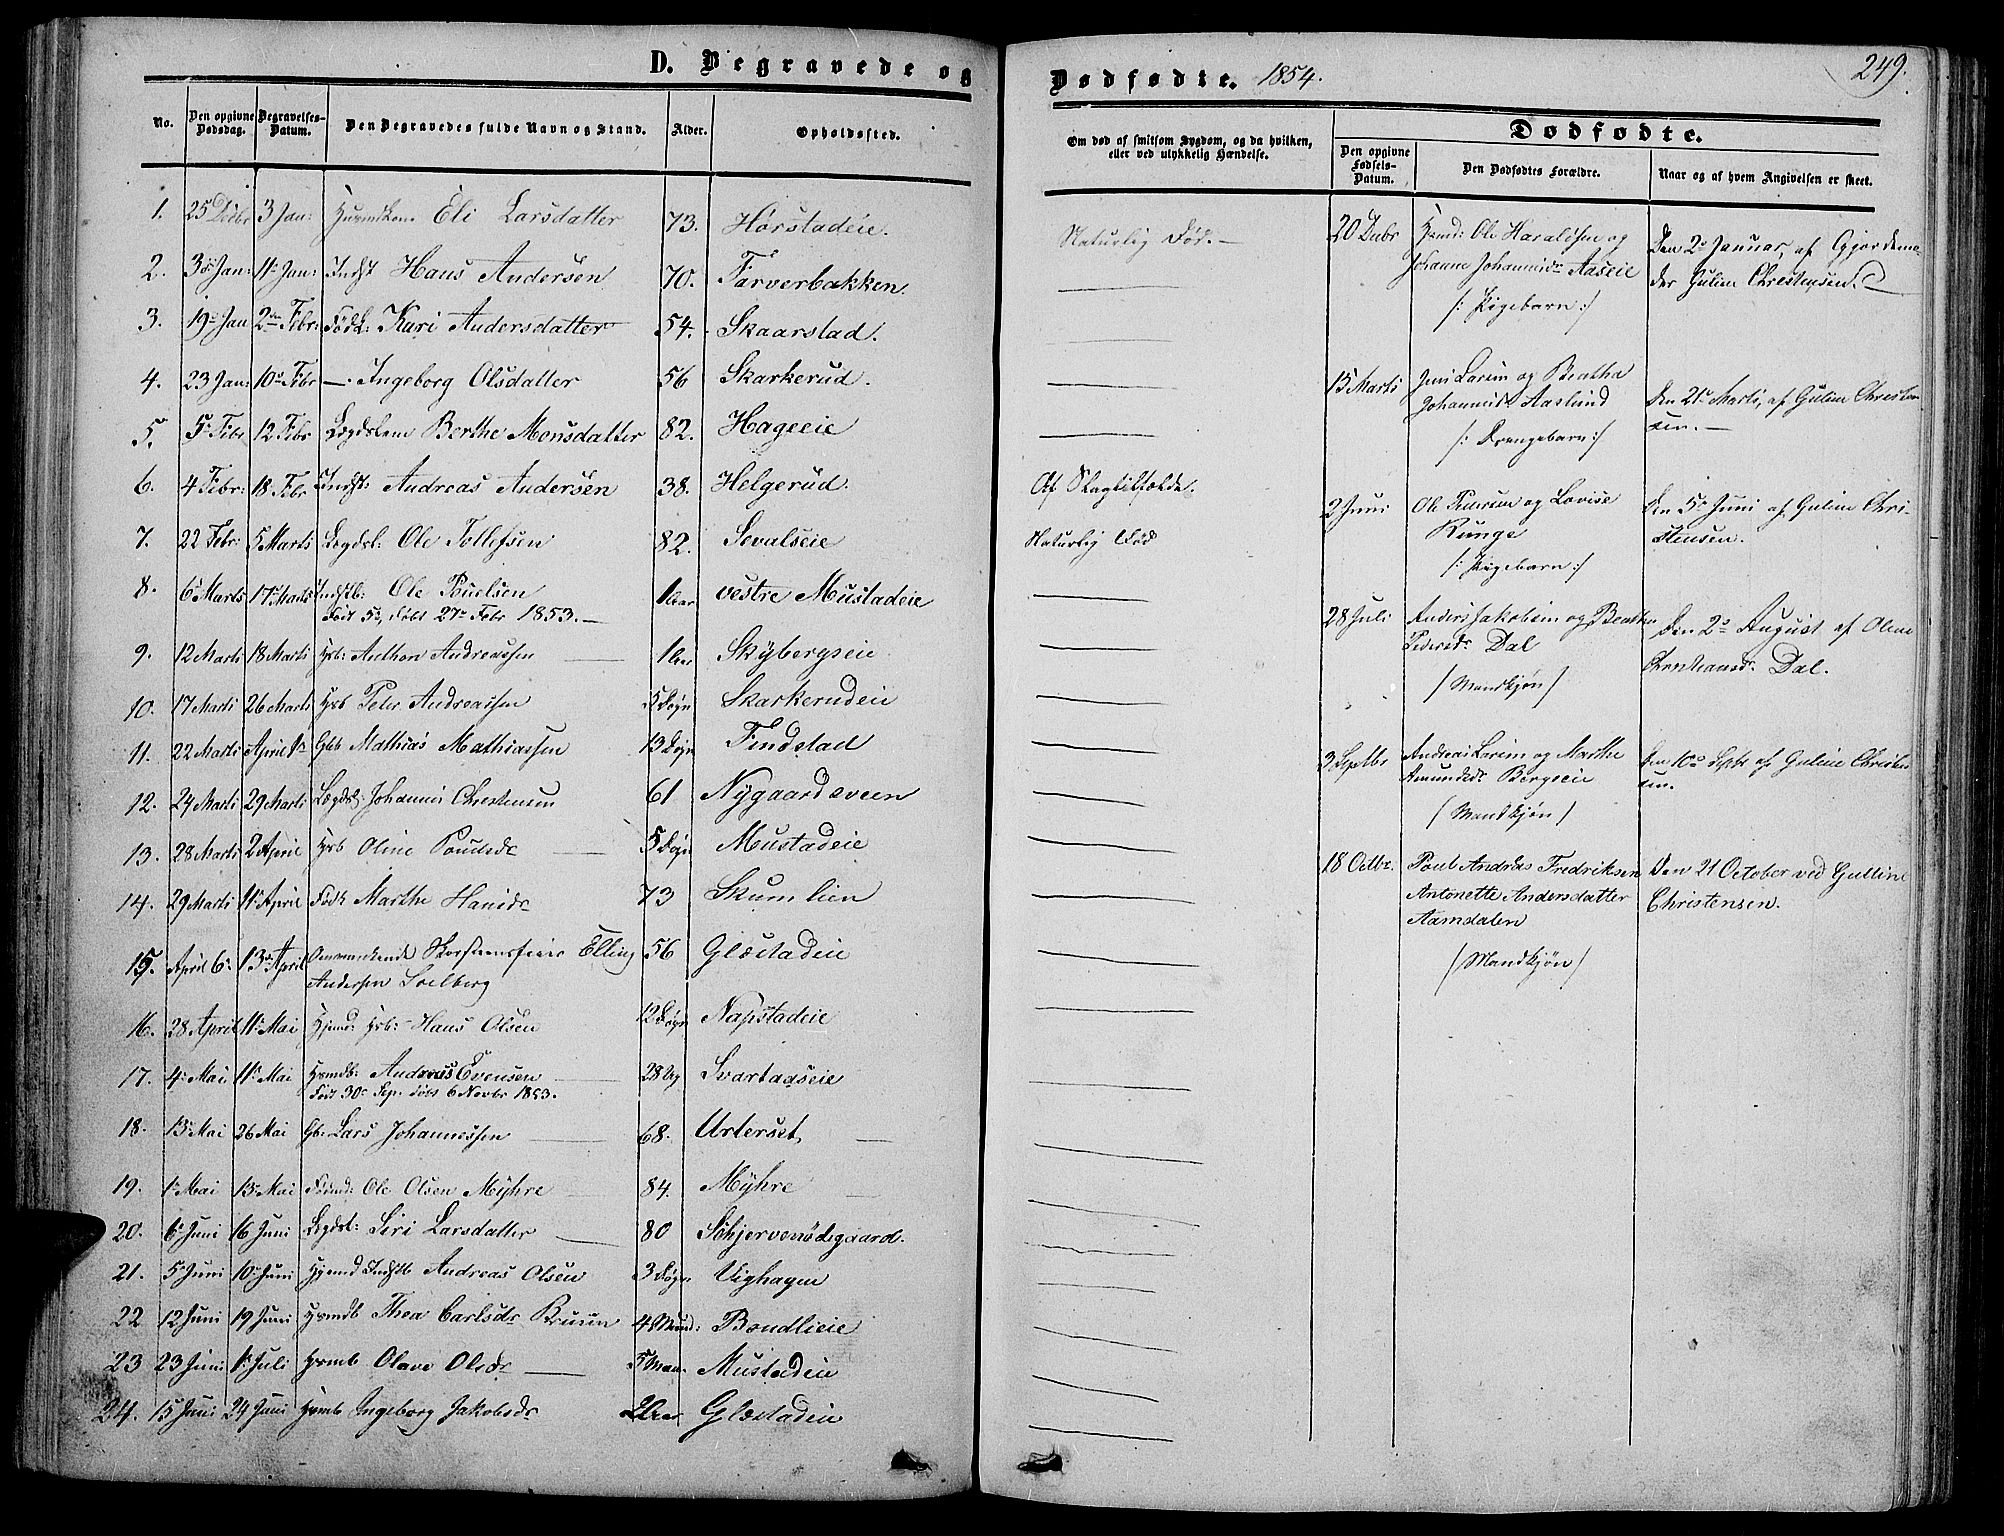 D. Begravede og
Dødfødte. 1854.
249.
No.
Den opgivne Dødsdag.
Begravelses-Datum.
Den Begravedes fulde Navn og Stand.
Alder.
Opholdssted.
Om død af smitsom Sygdom, og da hvilken,
eller ved ulykkelig Hændelse.
Dødfødte.
Den opgivne Fødsels-Datum.
Den Dødfødtes Forældre.
Naar og af hvem Angivelsen er skeet.
1. 25 Decbr 3 Jan: Eli Larsdatter 73. Hørstadeie.
Naturlig Død. —
2. 3die Jan: 11te Jan: Indst Hans Andersen 70. Farverbakken.
3. 19de Jan 2den Febr: Födr: Kari Andersdatter 54. Skaarstad.
4. 23 Jan: 10de Febr — Ingeborg Olsdatter 56 Skarkerud.
5. 5te Febr 12 Febr Lægdslem Berthe Monsdatter 82. Hageeie
6. 4 Febr: 18 Febr Indst: Andreas Andersen 38. Helgerud.
Af Slagtilfælde.
7. 22 Febr: 5 Marts Lægdsl: Ole Tollefsen 82. Sevalseie
Naturlig Død
8. 6te Marts 17de Marts Indstb: Ole Poulsen 1 Aar vestre Mustadeie
Født 5te, døbt 27de Febr 1853. —
9. 12 Marts 18 Marts Hsb: Anthon Andreassen 1 Aar Skybergseie
10. 17 Marts 26 Marts Hsb Peter Andreassen 5 Døgn Skarkerudeie
11. 22 Marts April 1ste Gbb Mathias Mathiassen 13 Døgn Findstad
12. 24 Marts 29 Marts Lægdsl: Johannes Christensen 61 Nygaardsveen
13. 28 Marts 2 April Hsb Oline Poulsdr 5 Døgn Mustadeie
14. 29 Marts 11te April Födr Marthe Hansdr 73 Skumlien
15. April 6te 13de April Omvankende Skorsteensfeier Elling 56 Glæstadeie
Andersen Solberg
16. 28 April 11te Mai Hjmd: Hsb: Hans Olsen 12 Døgn Napstadeie
17. 4de Mai 11te Mai Hsmdb: Andreas Evensen 28 Ug Svartadseie
Født 30te Sep. døbt 6 Novbr 1853.
18. 13de Mai 26 Mai Gb: Lars Johannessen 68. Urterset
19. 1ste Mai 13de Mai Ole Olsen Myhre 84. Myhre
20. 6te Juni 16 Juni Lægdsl: Siri Larsdatter 80 Schjervenødegaard.
21. 5 Juni 10de Juni Hjemd Indstb Andreas Olsen 3 Døgn Vighagen
22 12 Juni 19 Juni Hsmdb Thea Carlsdr Bruun 4 Maand: Bondlieie
23 23 Juni: 1ste Juli Hsmb Olave Olsdr 5 Maan. Mustadeie
24. 15 Juni 24 Juni Hsmb Ingeborg Jakobsdr Aar Glæstadeie
20 Decbr Hsmd: Ole Haraldsen og
Johanne Johannisdr Aaseie
/: Pigebarn :/
Den 2de Januar, af Gjordemo-
der Guline Christensen.
15 Marts Jens Larsen og Beatha
Johannisdr Aaslund
/: Drengebarn :/
Den 21de Marts, af Guline Christen
sen. —
2 Juni Ole Pedersen og Lovise
Runge
/: Pigebarn :/
Den 5te Juni af Guline Chri-
stensen.
28 Juli Anders Jakobsen og Beathe
Pedersdr Dal
/ Mandkjøn /
Den 2de August af Oline
Christiansdr Dal.
3 Septbr Andreas Larsen og Marthe
Amundsdr Bergseie
/ Mandkjøn /
Den 10de Septbr af Guline Christen
sen.
18 Octbr. Poul Andreas Fredriksen
Antonette Andersdatter
Aamdalen
/ Mandkjøn /
Den 21 October ved Gulline
Christensen.